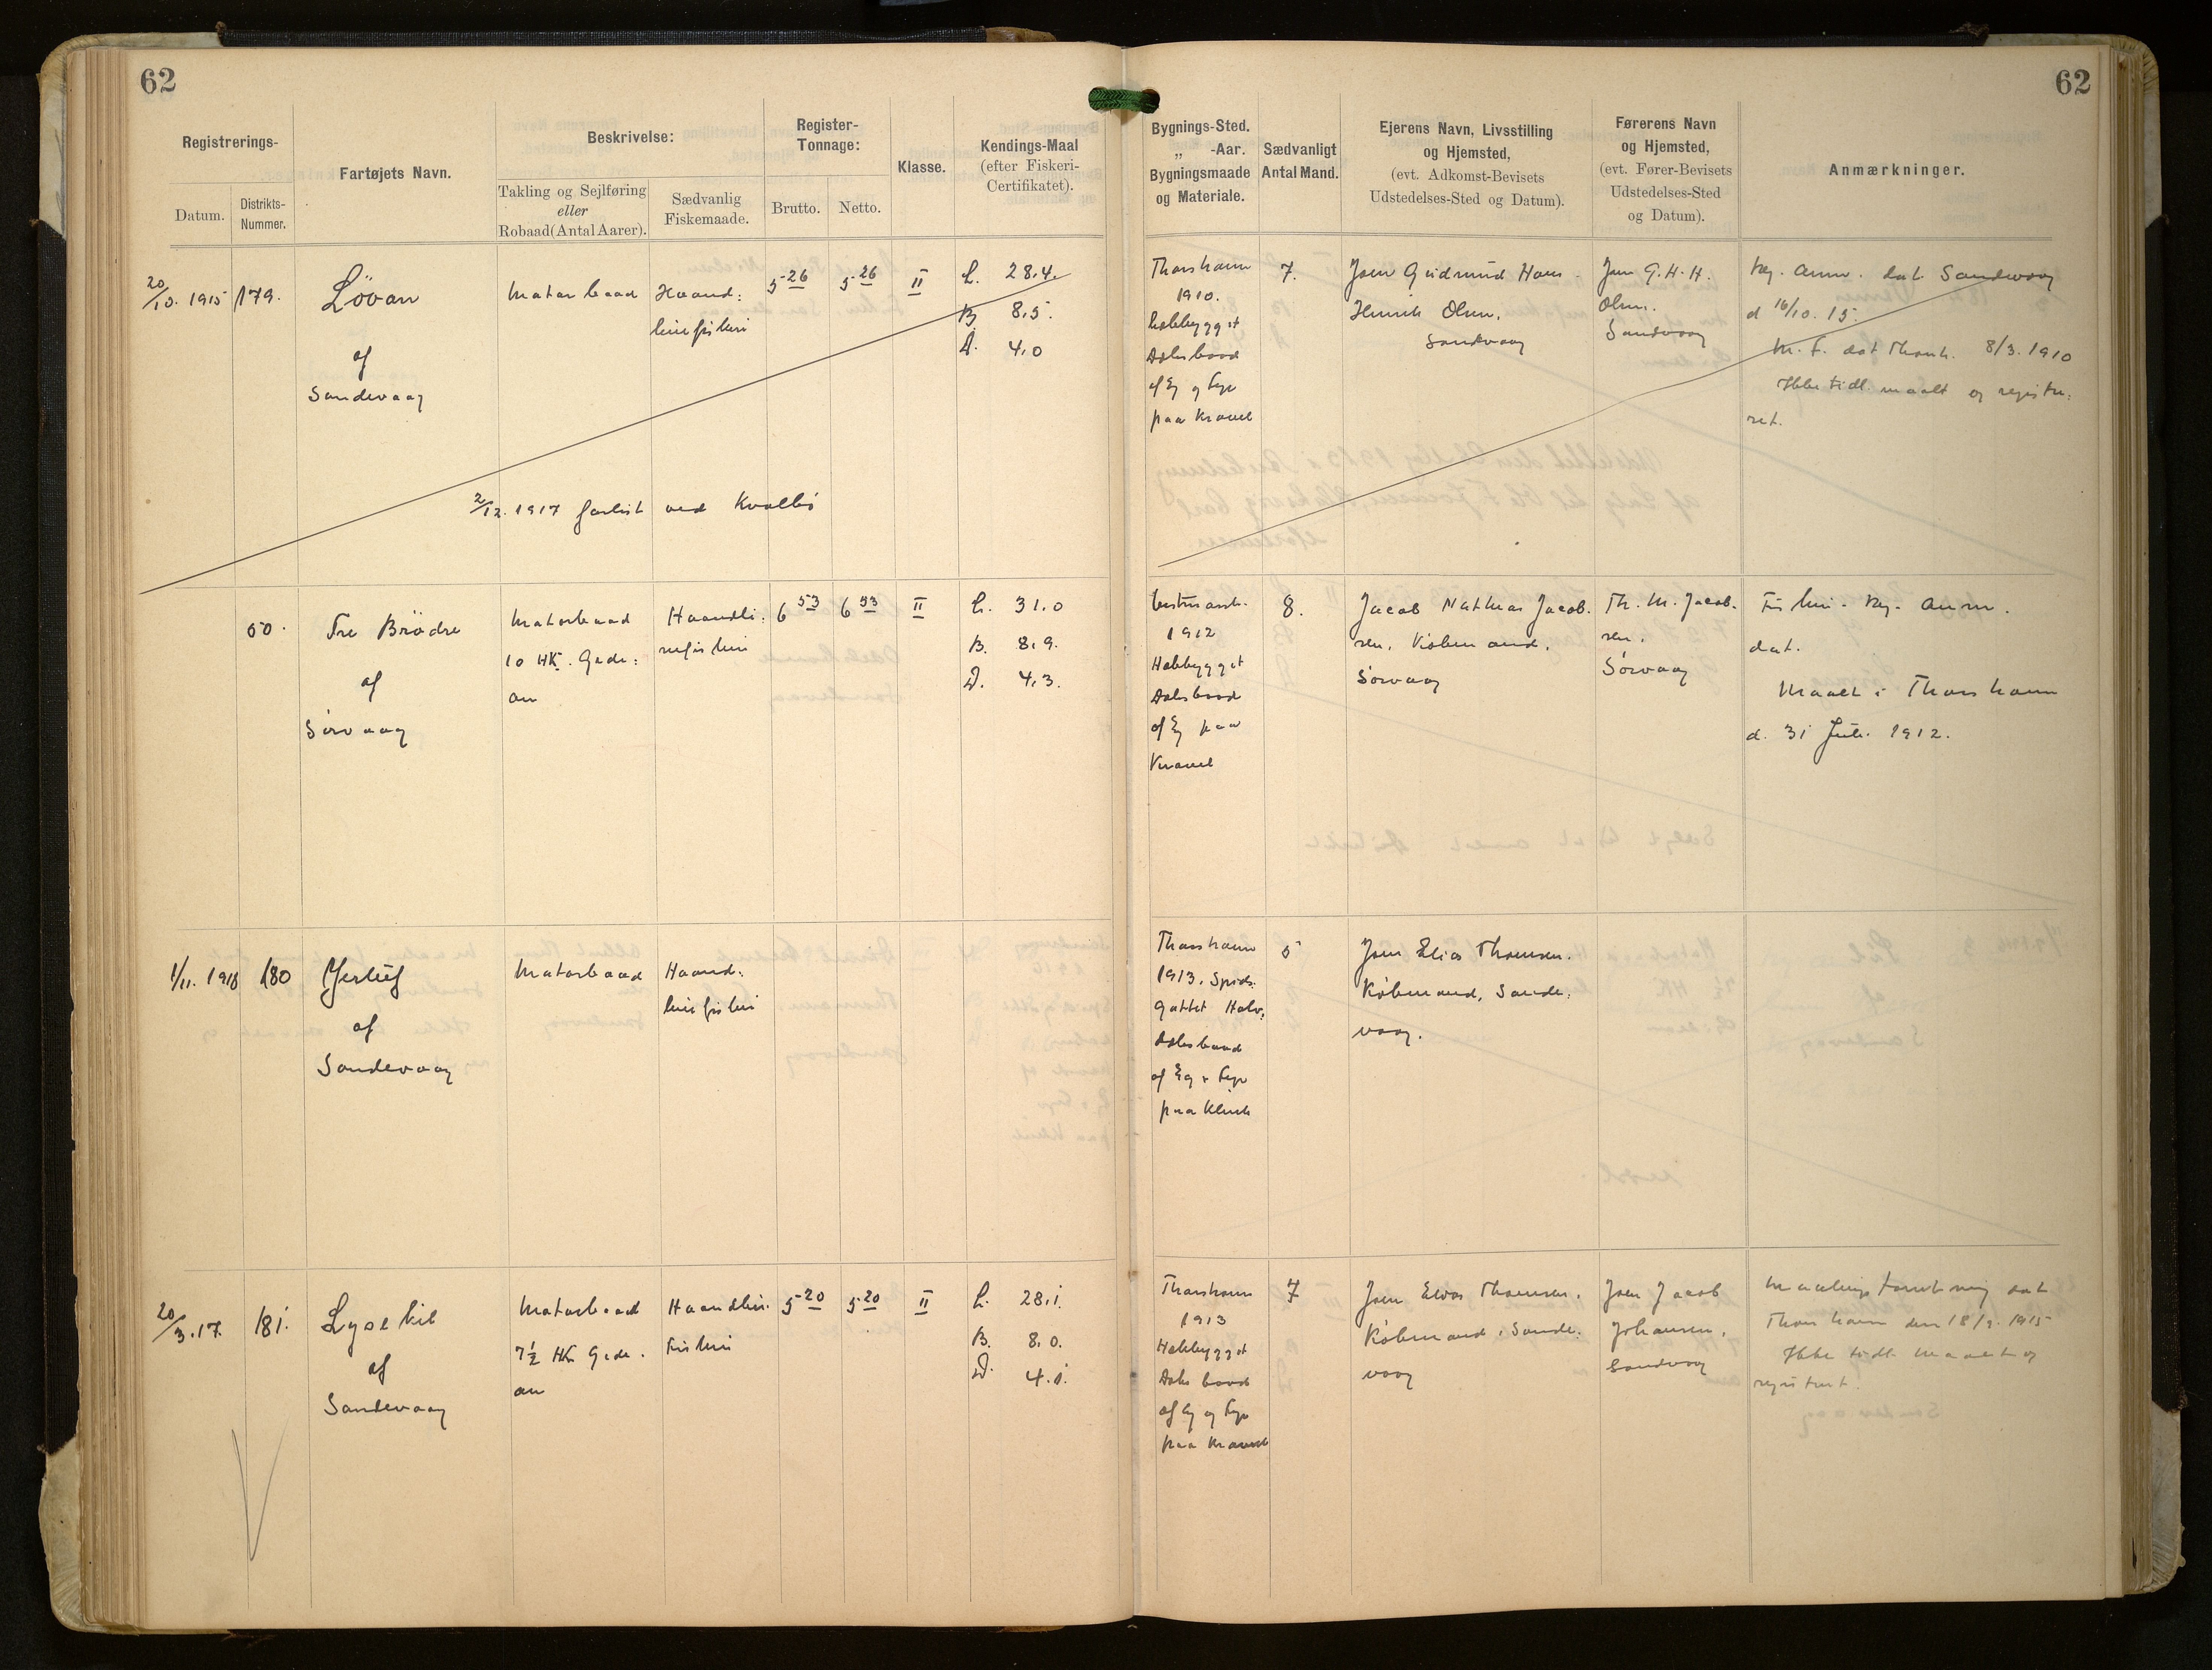 62
62
Registrerings-
Datum.
Distrikts-
Nummer.
Fartøjets Navn.
Beskrivelse:
Takling og Sejlføring
eller
Robaad (Antal Aarer).
Sædvanlig
Fiskemaade.
Register-
Tonnage:
Brutto.
Netto.
Klasse.
Kendings-Maal
(efter Fiskeri-
Certifikatet).
Bygnings-Sted.
„ -Aar.
Bygningsmaade
og Materiale.
Sædvanligt
Antal Mand.
Ejerens Navn, Livsstilling
og Hjemsted,
(evt. Adkomst-Bevisets
Udstedelses-Sted og Datum).
Førerens Navn
og Hjemsted,
(evt. Fører-Bevisets
Udstedelses-Sted
og Datum).
Anmærkninger.
20/10. 1915
179.
Lövan
af
Sandevaag
Motorbaad
Haand:
linefiskeri
5 26
5 26
II
L. 28.4.
B 8.5.
D. 4.0
Thorshavn
1910.
Halvbygget
Dæksbaad
af Eg og Fyr
paa Kravel
7.
Joen Gudmund Hans
Henrik Olsen,
Sandevaag
Joen G. H. H.
Olsen.
Sandevaag
Reg. Anm. dat Sandevaag
d 16/10. 15.
M. F. dat Thorsh. 8/3. 1910
Ikke tidl. maalt og registre:
ret.
2/12. 1917 forlist ved Kvalbö
50.
Tre Brödre
af
Sörvaag
Motorbaad
10 HK. Gede:
an
Haandli:
nefiskeri
6 53
6 53
II
L. 31.0
B. 8.9.
D. 4.3.
Vestmanh.
1912
Halvbygget
Dæksbaad
af Eg paa
Kravel
8.
Jacob Mathias Jacob:
sen, Købmand,
Sörvaag
Th. M. Jacob:
sen.
Sörvaag
Fiskeri-Reg. Anm.
dat.
Maalt i Thorshavn
d. 31 Juli 1912.
1/11. 1916
180
af
Sandevaag
Motorbaad
Haand:
linefiskeri
Thorshavn
1913. Spids:
gattet Halv:
dæksbaad
af Eg & Fyr
paa Klink
5
Joen Elias Thomsen.
Købmand, Sande:
vaag.
20/3. 17.
181.
Lysekil
af
Sandevaag
Motorbaad
7½ HK Gede:
an
Haandlin:
Fiskeri
5 20
5 20
II
L. 28.1.
B. 8.0.
D. 4.1.
Thorshavn
1913
Halvbygget
Dæksbaad
af Eg og Fyr
paa Kravel
7
Joen Elias Thomsen,
Købmand, Sande:
vaag
Joen Jacob
Johansen,
Sandevaag
Maalings dat
Thorshavn den 18/3. 1915
Ikke tidl. maalt og
registreret.